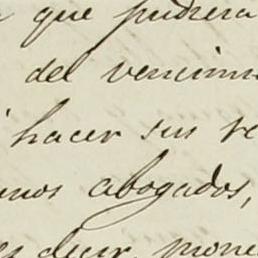 que pudiera
del vencimi
hacer sus re
unos abogados,
es decir, pone